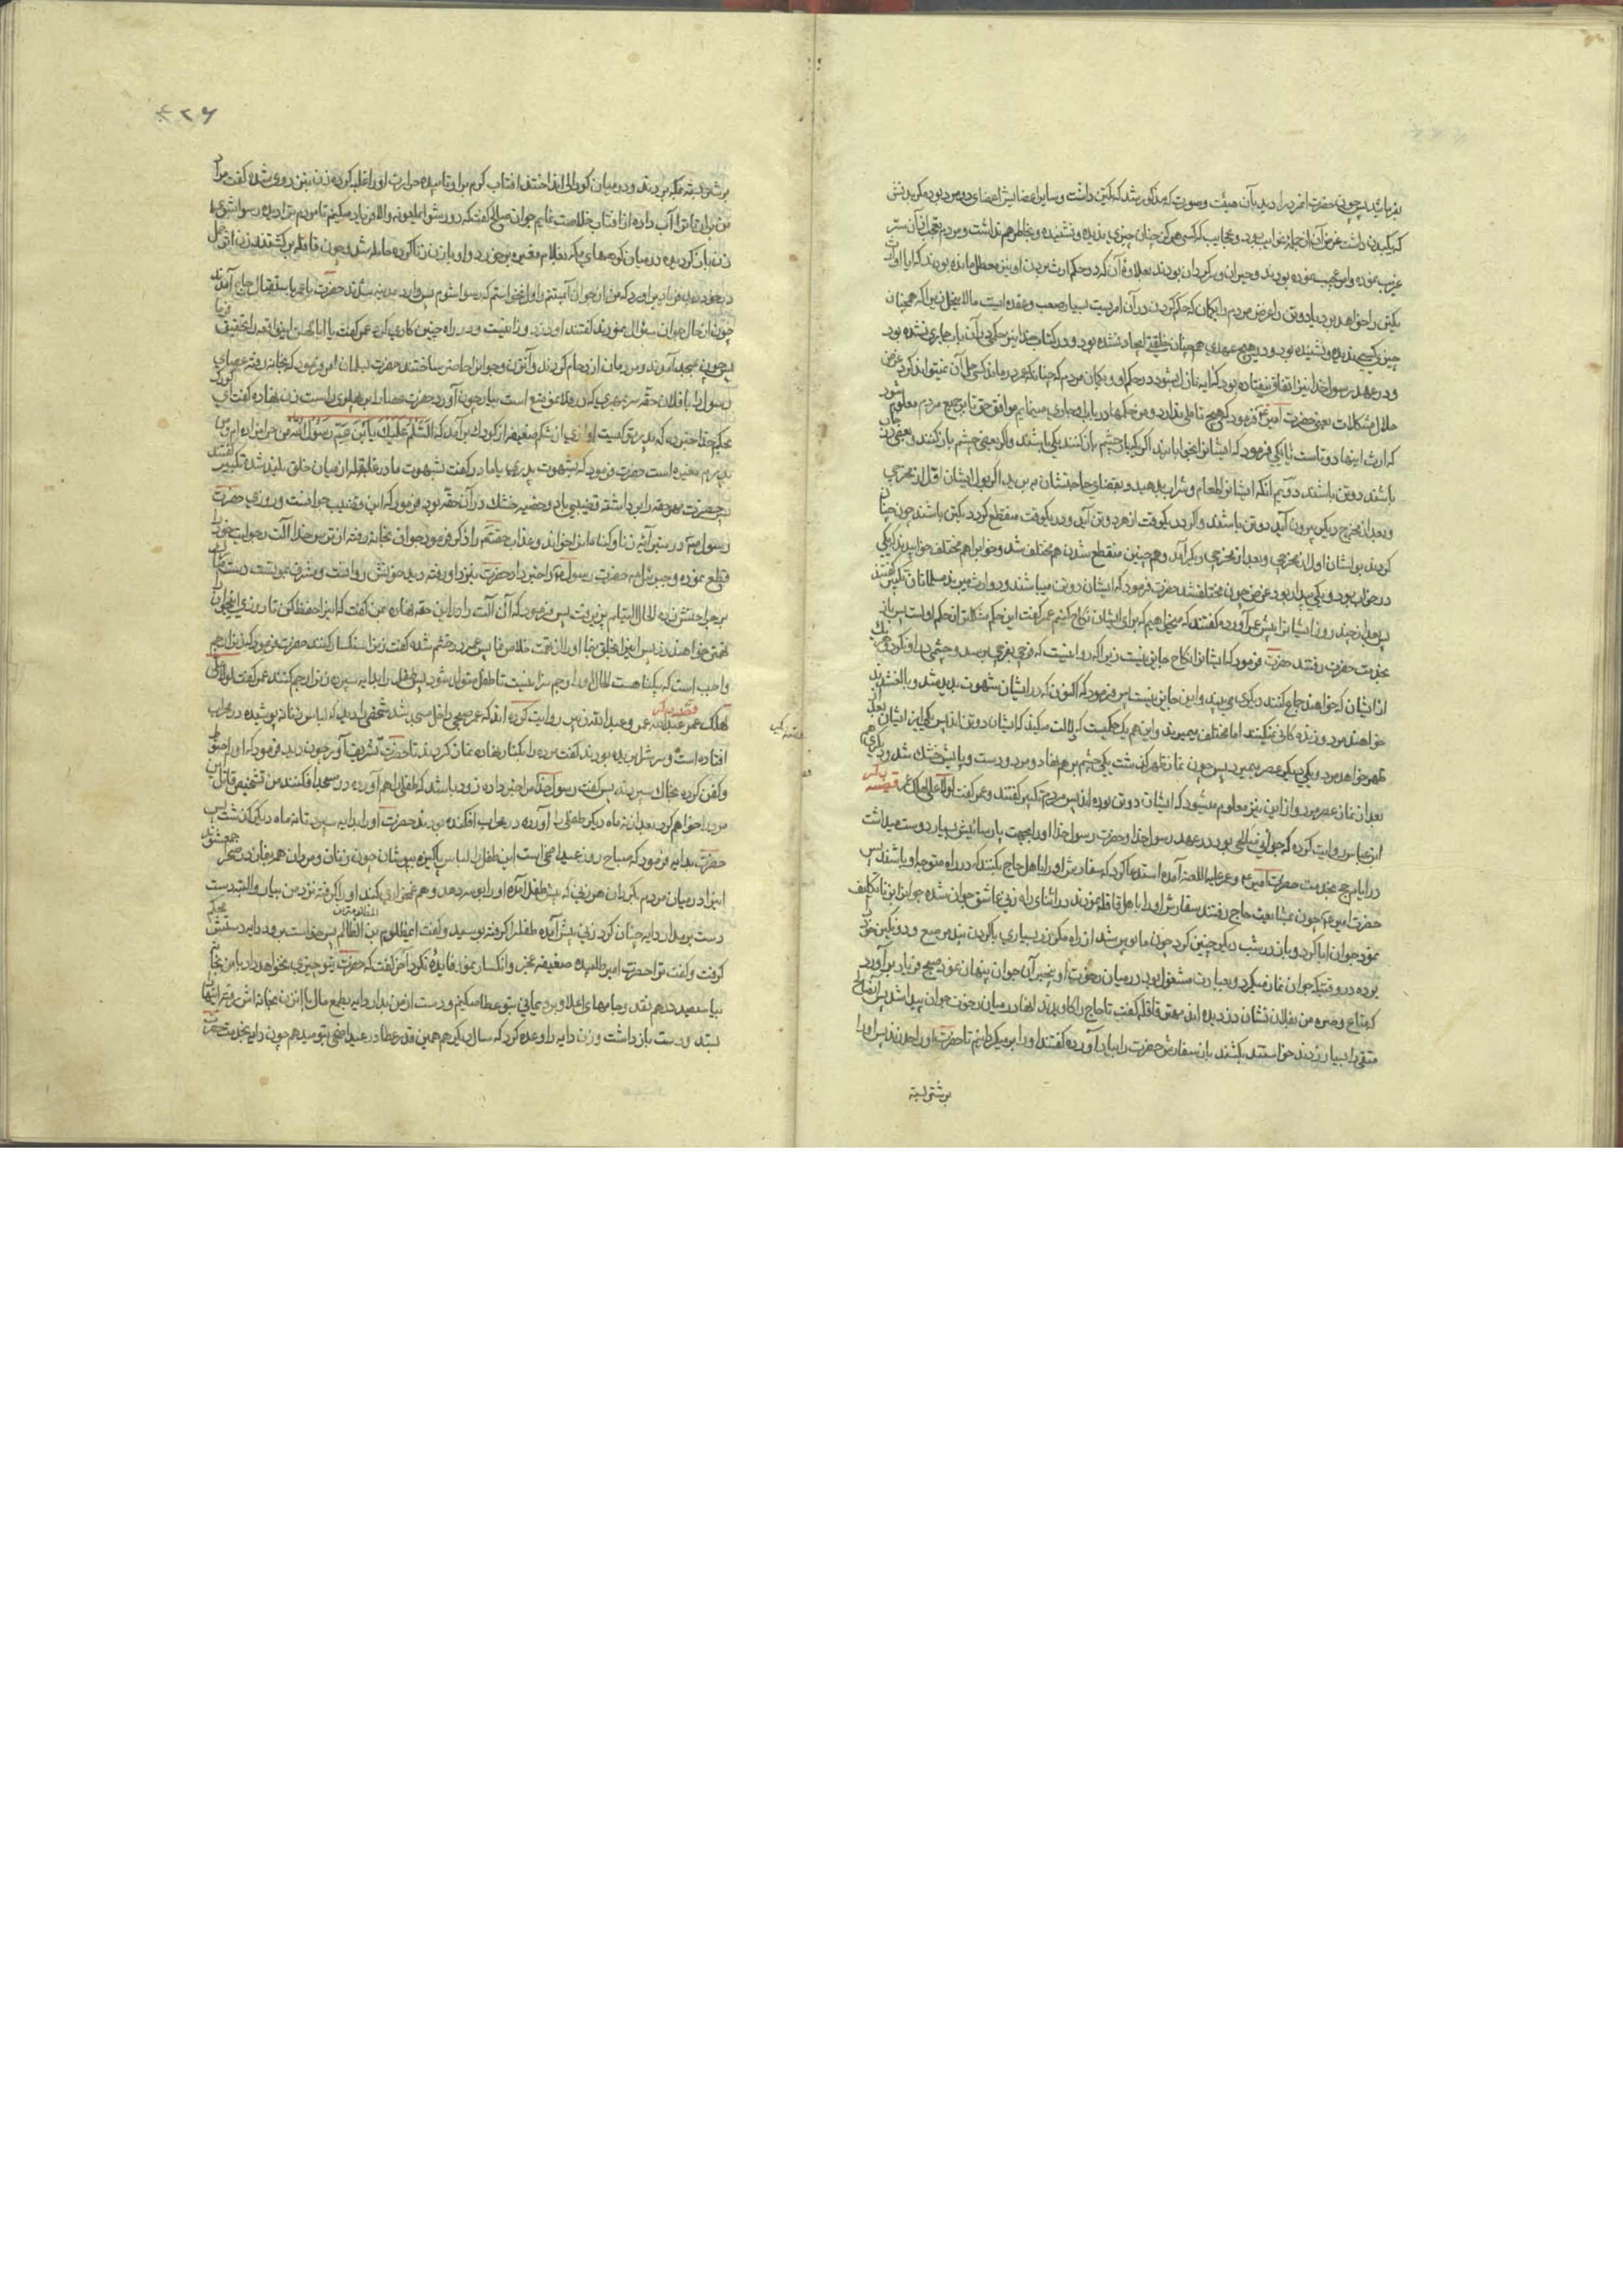 بفرمائید پس چون حضرت انمرد را دید بآن هیئت و صورت که مذکور شد که یکتن داشت و سایر اعضایش اعضای دو مرد بوده مگر بدنش
که یک بدن داشت غرض آن از جمله غرایب بود و عجایب که کسی هرکز چنان چیزی ندیده و نشنیده و بخاطر هم نداشت و مردم تعجب از آن
غریب نموده و امر عجیب نموده بودند و حیران و سرکردان بودند بعلاوهٔ آن که در حکم ارث بردن او نیز معطل مانده بودند که ایا او ارث
یکتن را خواهد برد یا دو تن را غرض مردم را کمان که حکم کردن در آن امر نیست بسیار صعب و عقده ایست مالا ینحل زیرا که همچنان
چیزی کسی ندیده و نشنیده بود و در هیچ عهدی همچنان خلقتی ایجاد نشده بود و در کتاب خدا نیز حکمی در آن باب جاری نشده بود
و در عهد رسول خدا نیز اتفاق نیفتاده بود که ایه نازل شود در حکم او و بکمان مردم که چنانکه عمر در ماند کسی حل آن نمیتواند کرد غرض
حلال مشکلات یعنی حضرت امیر ع فرمود که هیچ تاملی ندارد و من حکمها در باب او جاری مینمایم موافق حق تا بر جمیع مردم معلوم شود
که ارث اینها دو تاست یا یکی فرمود که ایشانرا بخوابانید اکر یکبار چشم باز کنند یکی باشند واکر بعضی چشم باز کنند و بعضی در خواب
باشند دو تن باشند دویم آنکه ایشانرا طعام و شراب بدهید و بقضای حاجتشان ببرید اکر بول ایشان اول از مخرجی
و بعد از مخرج دیکر بیرون آید دو تن باشند و اکر در یکوقت از هر دو تن آید و در یکوقت منقطع کردد یکتن باشند چون چنان
کردند بول ایشان اول از مخرجی و بعد از مخرجی دیکر آمد و همچنین منقطع شدن هم مختلف شد و خواب هم مختلف خوابیدند که یکی
در خواب بود و یکی بیدار بود غرض چون مختلف شد حضرت فرمود که ایشان دو تن میباشند و دو ارث میبرند مسلمانان تکبیر کفتند
پس بعد از چند روز ایشانرا پیش عمر آورده کفتند که میخواهیم که برای ایشان نکاح کنیم عمر کفت این حکم مشکلتر از حکم اولست پس باز
بخدمت حضرت رفتند حضرت فرمود که ایشانرا نکاح جایز نیست زیرا که روا نیست که فرجی
از ایشان که خواهند جماع کنند دیکری می بیند و این جایز نیست پس فرمود که اکنون که در ایشان شهوت بدید شد
خواهند مرد و زنده کانی نمیکنند اما مختلف میمیرند و این هم یک حکمیست که دلالت میکند که ایشان دو تن اند پس یکی از ایشان بعد از
ظهر خواهد مرد و یکی دیکر عصر بمیرد پس چون نماز ظهر کذشت یکی چشم بر هم نهاد و مرد و دست و پایش خشک شد و دیکری هم
بعد از نماز عصر مرد و از این نیز معلوم میشود که ایشان دو تن بوده اند پس مردم تکبیر کفتند و عمر کفت لولا علی لهلک عمر قصه دیکر
ابن عباس روایت کرده که جوانی صالحی بود در عهد رسول خدا و حضرت رسول خدا او را بجهت پارسائیش بسیار دوست میداشت
در ایام حج بخدمت حضرت امیر ع و عمر علیه اللعنه آمده استدعا کرد که سفارش او را باهل حاج بکنند که در راه متوجه او باشند پس
حضرت امیر ع چون بمشایعت حاج رفتند سفارش او را باهل قافله نمودند در اثنای راه زنی عاشق جوان شده جوانرا بزنا تکلیف
نمود جوان ابا کرد و باز در شب دیکر چنین کرد چون مایوس شد از راه مکر زر بسیاری با کردن بند مرصع و دو نکین خود را
بوده در وقتیکه جوان نماز میکرد و بعبادت مشغول بود در میان رخوت او بیخبر آن جوان پنهان نمود صبح فریاد بر آورد
که متاع و صره من بفلان نشان دزدیده اند مهتر قافله کفت تا حاج را کاویدند انها در میان رخوت جوان پیدا شد پس آنصالح
متقی را بسیار زدند خواستند بکشند باز سفارش حضرت را بیاد آورده کفتند او را بر میکردانیم تا حضرت او را حد زند پس او را
بر شتر بسته
۴۲۶
بر شتر بسته بمکه بردند و در میان کودالی انداختند افتاب کرم بر او تابیده حرارت او را غلبه کرده زن نیز نزد وی شده کفت مراد
من برار تا ترا آب داده از افتاب خلاصت نمایم جوان صالح کفت که دور شو ای ملعونه والا فریاد میکنم تا مردم ترا دیده رسوا شوی
زن باز کردیده در میان کوچهای مکه بغلام مغیره برخورد و او با زن زنا کرده حامله شد چون قافله بر کشتند زن اثر حمل
در خود دیده فریاد بر اورد که من از جوان آبستنم و اول نخواستم که رسوا شوم پس وارد مدینه شدند حضرت با عمر باستقبال حاج آمدند
چون از حال جوان سئوال نمودند کفتند او دزد و زانیست و در راه چنین کاری کرد عمر کفت یا ابا الحسن این واقعه را تحقیق فرما
پس چون بمسجد آمدند و مردمان ازدحام کردند و آنزن و جوانرا حاضر ساختند حضرت بسلمان امر فرمود که بخانه رفته عصای
رسول را با فلان حقه سر بمهری که در فلان موضع است بیار چون آورد حضرت عصا را بر پهلوی راست زن نهاده کفت ای کودک
بحکم خدا خبر ده که پدر تو کیست اوازی از شکم ضعیفه از کودک بر آمد که السلام علیک یا بن عم رسول الله من حرامزاده ام و من
پدرم مغیره است حضرت فرمود که بشهوت پدری یا مادر کفت بشهوت مادر غلغله از میان خلق بلند شده تکبیر کفتند
پس حضرت مهر حقه را برداشته قضیبی بادو خصیه خشک در آن حقه بود فرمود که این قضیب جوانست و روزی حضرت
رسول ص آدر ستر آیه زنا و کنا هانرا خواند و عذاب جهنم را ذکر فرمود جوان بخانه رفته از ترس خدا آلت رجولیت خود را
قطع نموده و جبرئیل ع حضرت رسول ص را خبر داد حضرت نیز نزد او رفته دید خونش روانست و مشرف بموتست دست مبارک
بر جراحتش زده فی الحال التیام پذیرفت پس فرمود که آن آلت را در این حقه نهاده بمن کفت که اینرا حفظ کن تا روزی اینجوانرا
تهمتی خواهند زد پس اینرا بخلق بنما او را از تهمت خلاص نما پس عمر در خشم شده کفت زنرا سنکسار کنند حضرت فرمود که زنرا رجم
واجب است که بیکناهست فی الحال اورا رجم سزا نیست تا طفل متولد شود پس طفل را بدایه سپرده زنرا رجم کنند عمر کفت لولا علی
لهلک عمر قصه دیکر عبدالله عمر و عبدالله زبیر روایت کرده اند که عمر صبحی داخل مسجد شد شخصی را دید که لباس زنانه پوشیده در محراب
افتاده است و سرش بریده بودند کفت مرده را بکنار نهاده نماز کردند تا حضرت تشریف آورد چون دید فرمود که او را غسل
و کفن کرده بخاک سپردند پس کفت رسول خدا مرا خبر داده زود باشد که طفلی را هم آورده در مسجد افکنند من تشخیص قاتل این
مرد را خواهم کرد بعد از نه ماه دیکر طفلی را آورده در محراب افکنده بودند حضرت او را بدایه سپرد تا نه ماه دیکر کذشت پس
حضرت بدایه فرمود که صباح روز عید اضحی است این طفل را لباس پاکیزه بپوشان چون زنان و مردان همه بنماز در صحرا جمع شوند
اینرا در میان مردم بکردان هر زنی که پیش طفل آمده او را بوسه دهد و هم غمخواری کند او را کرفته نزد من بیار و البته دست
دست بر مدار دایه چنان کرد زنی پیش آمده طفل را کرفته بوسید و کفت ای مظلوم بن الظالم پس خواست برود دایه دستش محکم
کرفت و کفت ترا حضرت امیر طلبیده ضعیفه عجز و انکسار نمود فایده نکرد آخر کفت که حضرت بتو چیزی نخواهد داد با من بخانه
بیا سیصد درهم نقد و جامهای اعلا و برد یمانی بتو عطا میکنم و دست از من بدار دایه بطمع مال با انزن بخانه اش رفته انها را
بستد و دست باز داشت و زن دایه را وعده کرد که سال دیکر هم همین قدر عطا در عید اضحی بتو میدهم چون دایه بخدمت حضرت